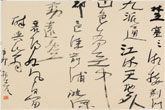 楚塞三湘接荆門
九派通江流天地外
山色有無中郡
邑浮前浦波瀾
動遠空
襄陽好風日
留醉與山翁